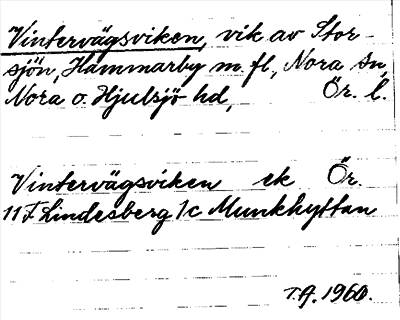 Vintervägsviken, vik av Stor-
sjön, Hammarby m. fl., Nora sn,
Nora o. Hjulsjö hd, Ör. l.
Vintervägsviken ek Ör.
11 F Lindesberg 1c Munkhyttan
T.A. 1960.